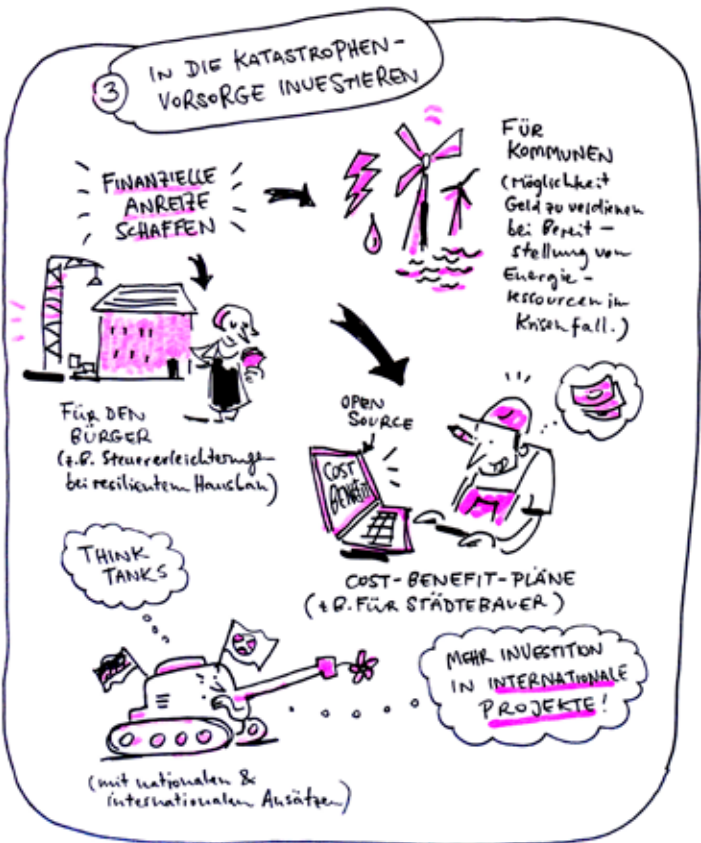 3
IN DIE KATASTROPHEN-
VORSORGE INVESTIEREN
FINANZIELLE
ANREIZE
SCHAFFEN
FÜR
KOMMUNEN
(Möglichkeit
Geld zu verdienen
bei Bereit-
stellung von
Energie-
ressourcen im
Krisenfall.)
FÜR DEN
BÜRGER
(z.B. Steuererleichterungen
bei resilientem Hausbau)
OPEN
SOURCE
COST
BENEFIT
COST-BENEFIT-PLÄNE
(z.B. FÜR STÄDTEBAUER)
THINK
TANKS
(mit nationalen &
internationalen Ansätzen)
MEHR INVESTITION
IN INTERNATIONALE
PROJEKTE!